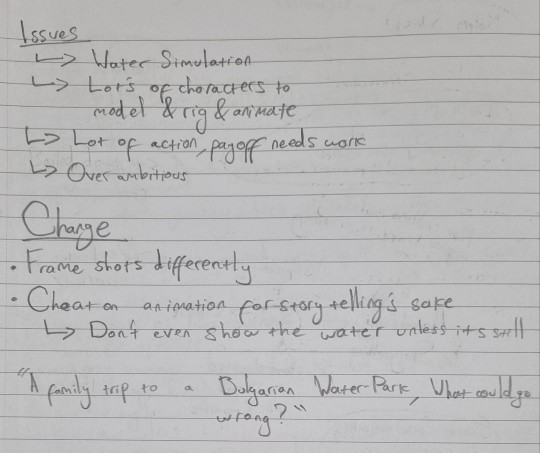 Issues
↳ Water Simulation
↳ Lot's of characters to
model & rig & animate
↳ Lot of action, payoff needs work
↳ Over ambitious
Change
• Frame shots differently
• Cheat on animation for story telling's sake
↳ Don't even show the water unless its still
"A family trip to a Bulgarian Water-Park, What could go
wrong?"